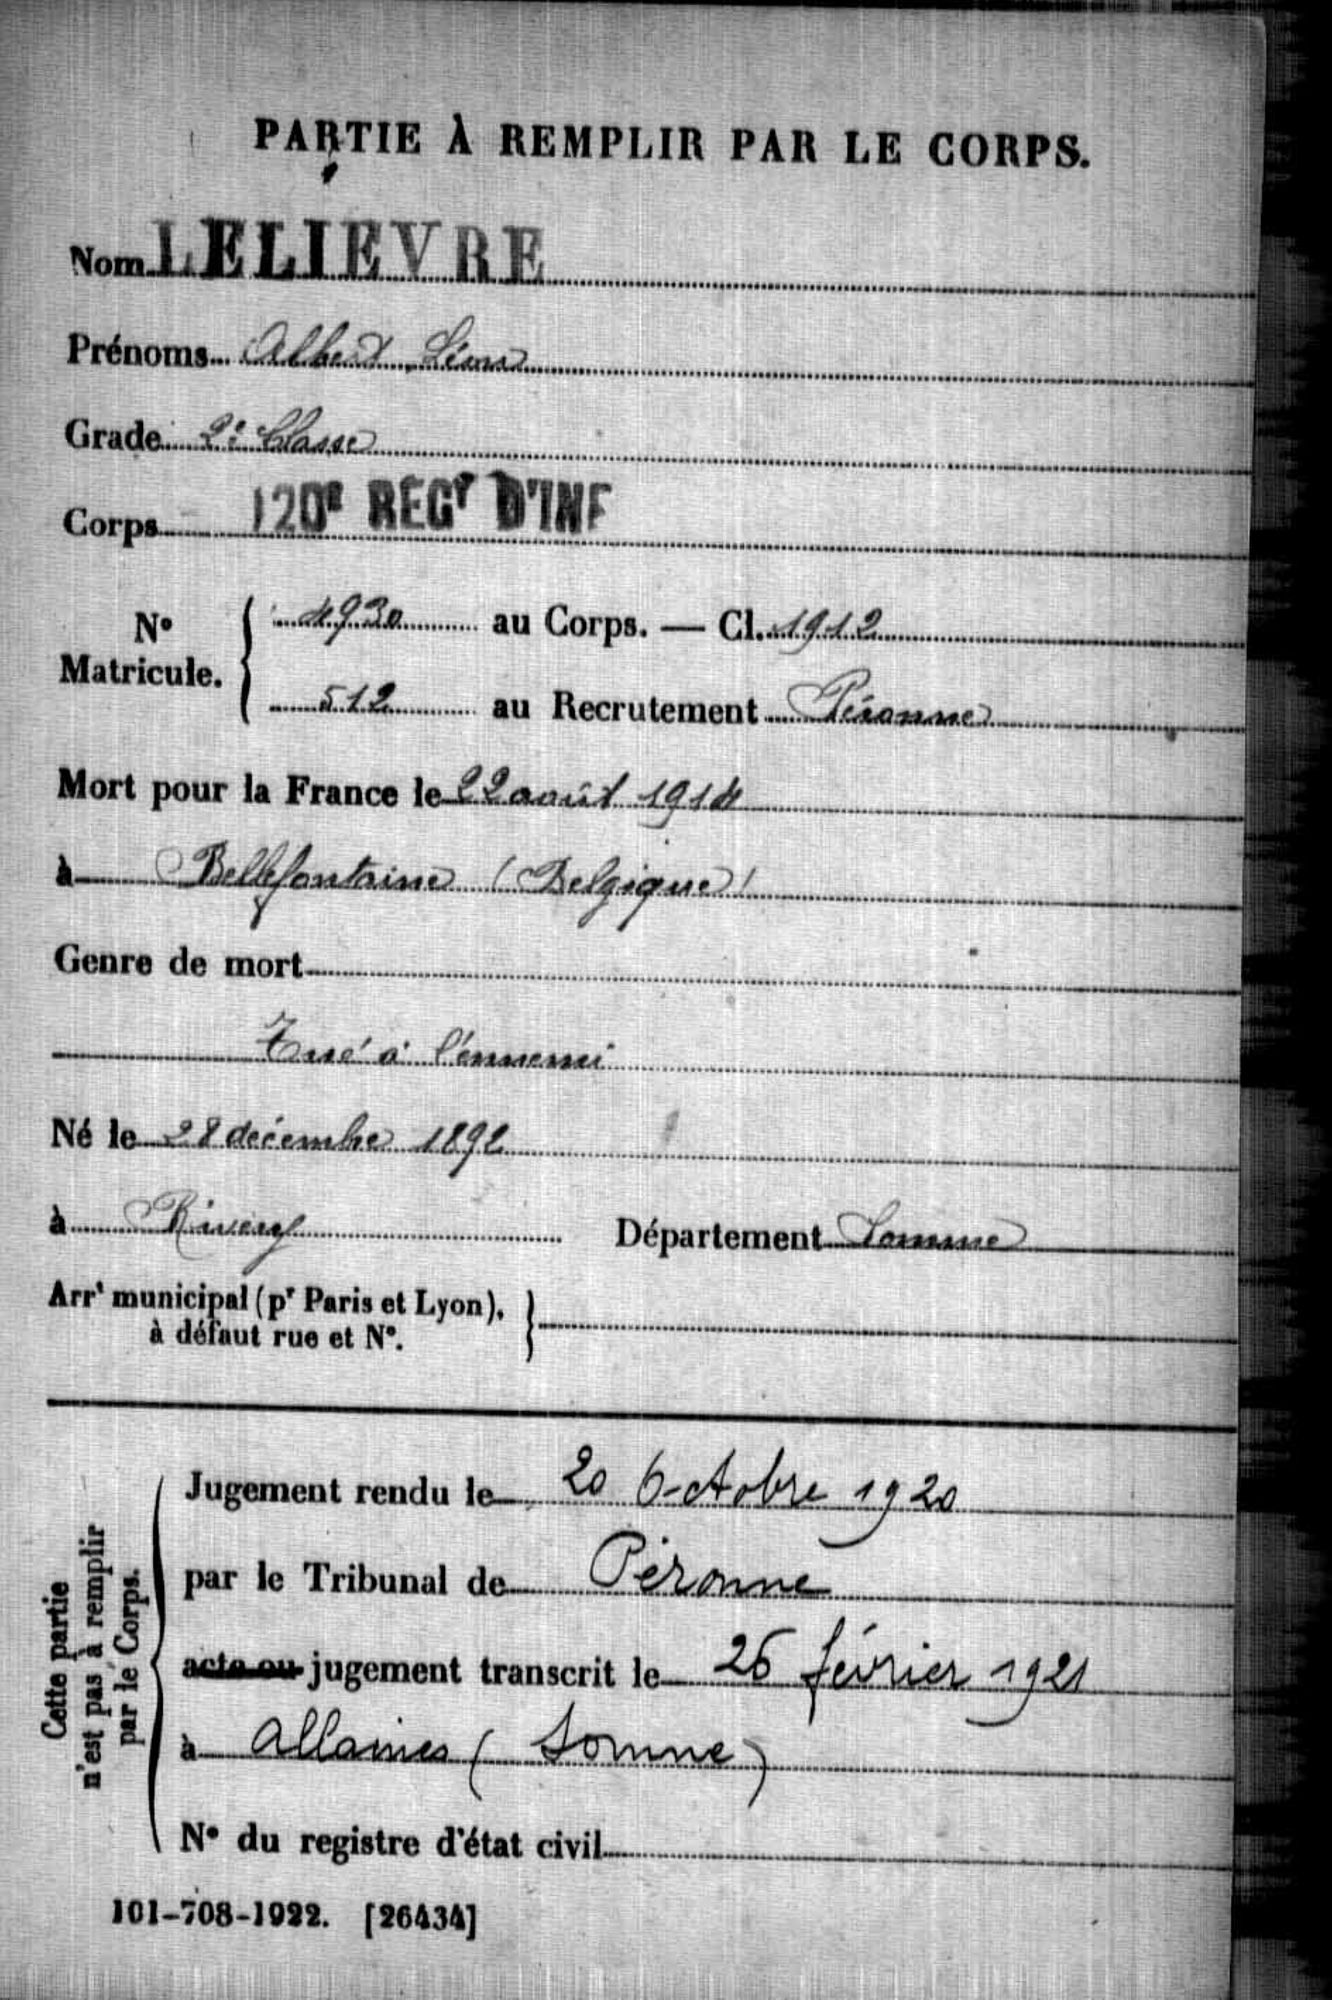 PARTIE À REMPLIR PAR LE CORPS.
Nom LELIEVRE
Prénoms Albert Léons
Grade 2e Classe
Corps 120e REGt D'INF
No Matricule. 4930 au Corps. — Cl. 1912
512 au Recrutement Péronne
Mort pour la France le 22 août 1914
à Bellefontaine (Belgique)
Genre de mort
Tué à l'ennemi
Né le 28 décembre 1892
à Rivery Département Somme
Arrt municipal (pr Paris et Lyon),
à défaut rue et No.
Cette partie
n'est pas à remplir
par le Corps.
Jugement rendu le 20 Octobre 1920
par le Tribunal de Péronne
acte ou jugement transcrit le 26 février 1921
à Allaines (Somme)
No du registre d'état civil
101-708-1922. [26434]